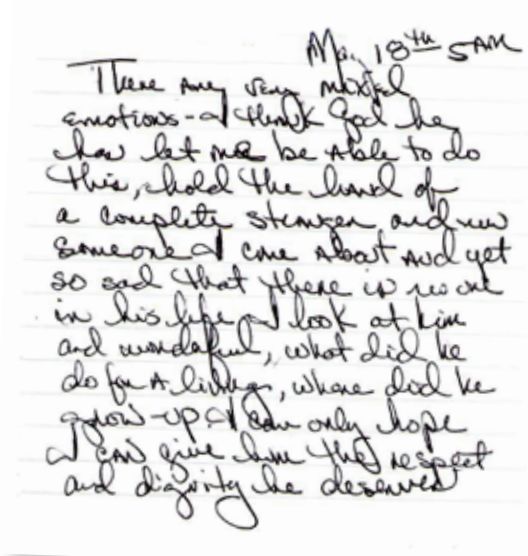 May 18th 5 AM
There are very mixed
emotions - I thank God he
has let me be Able to do
this, hold the hand of
a complete stranger and now
someone I care About and yet
so sad that there is no one
in his life. I look at him
and wonderful, what did he
do for A living, where did he
grow-up. I can only hope
I can give him the respect
and dignity he deserves